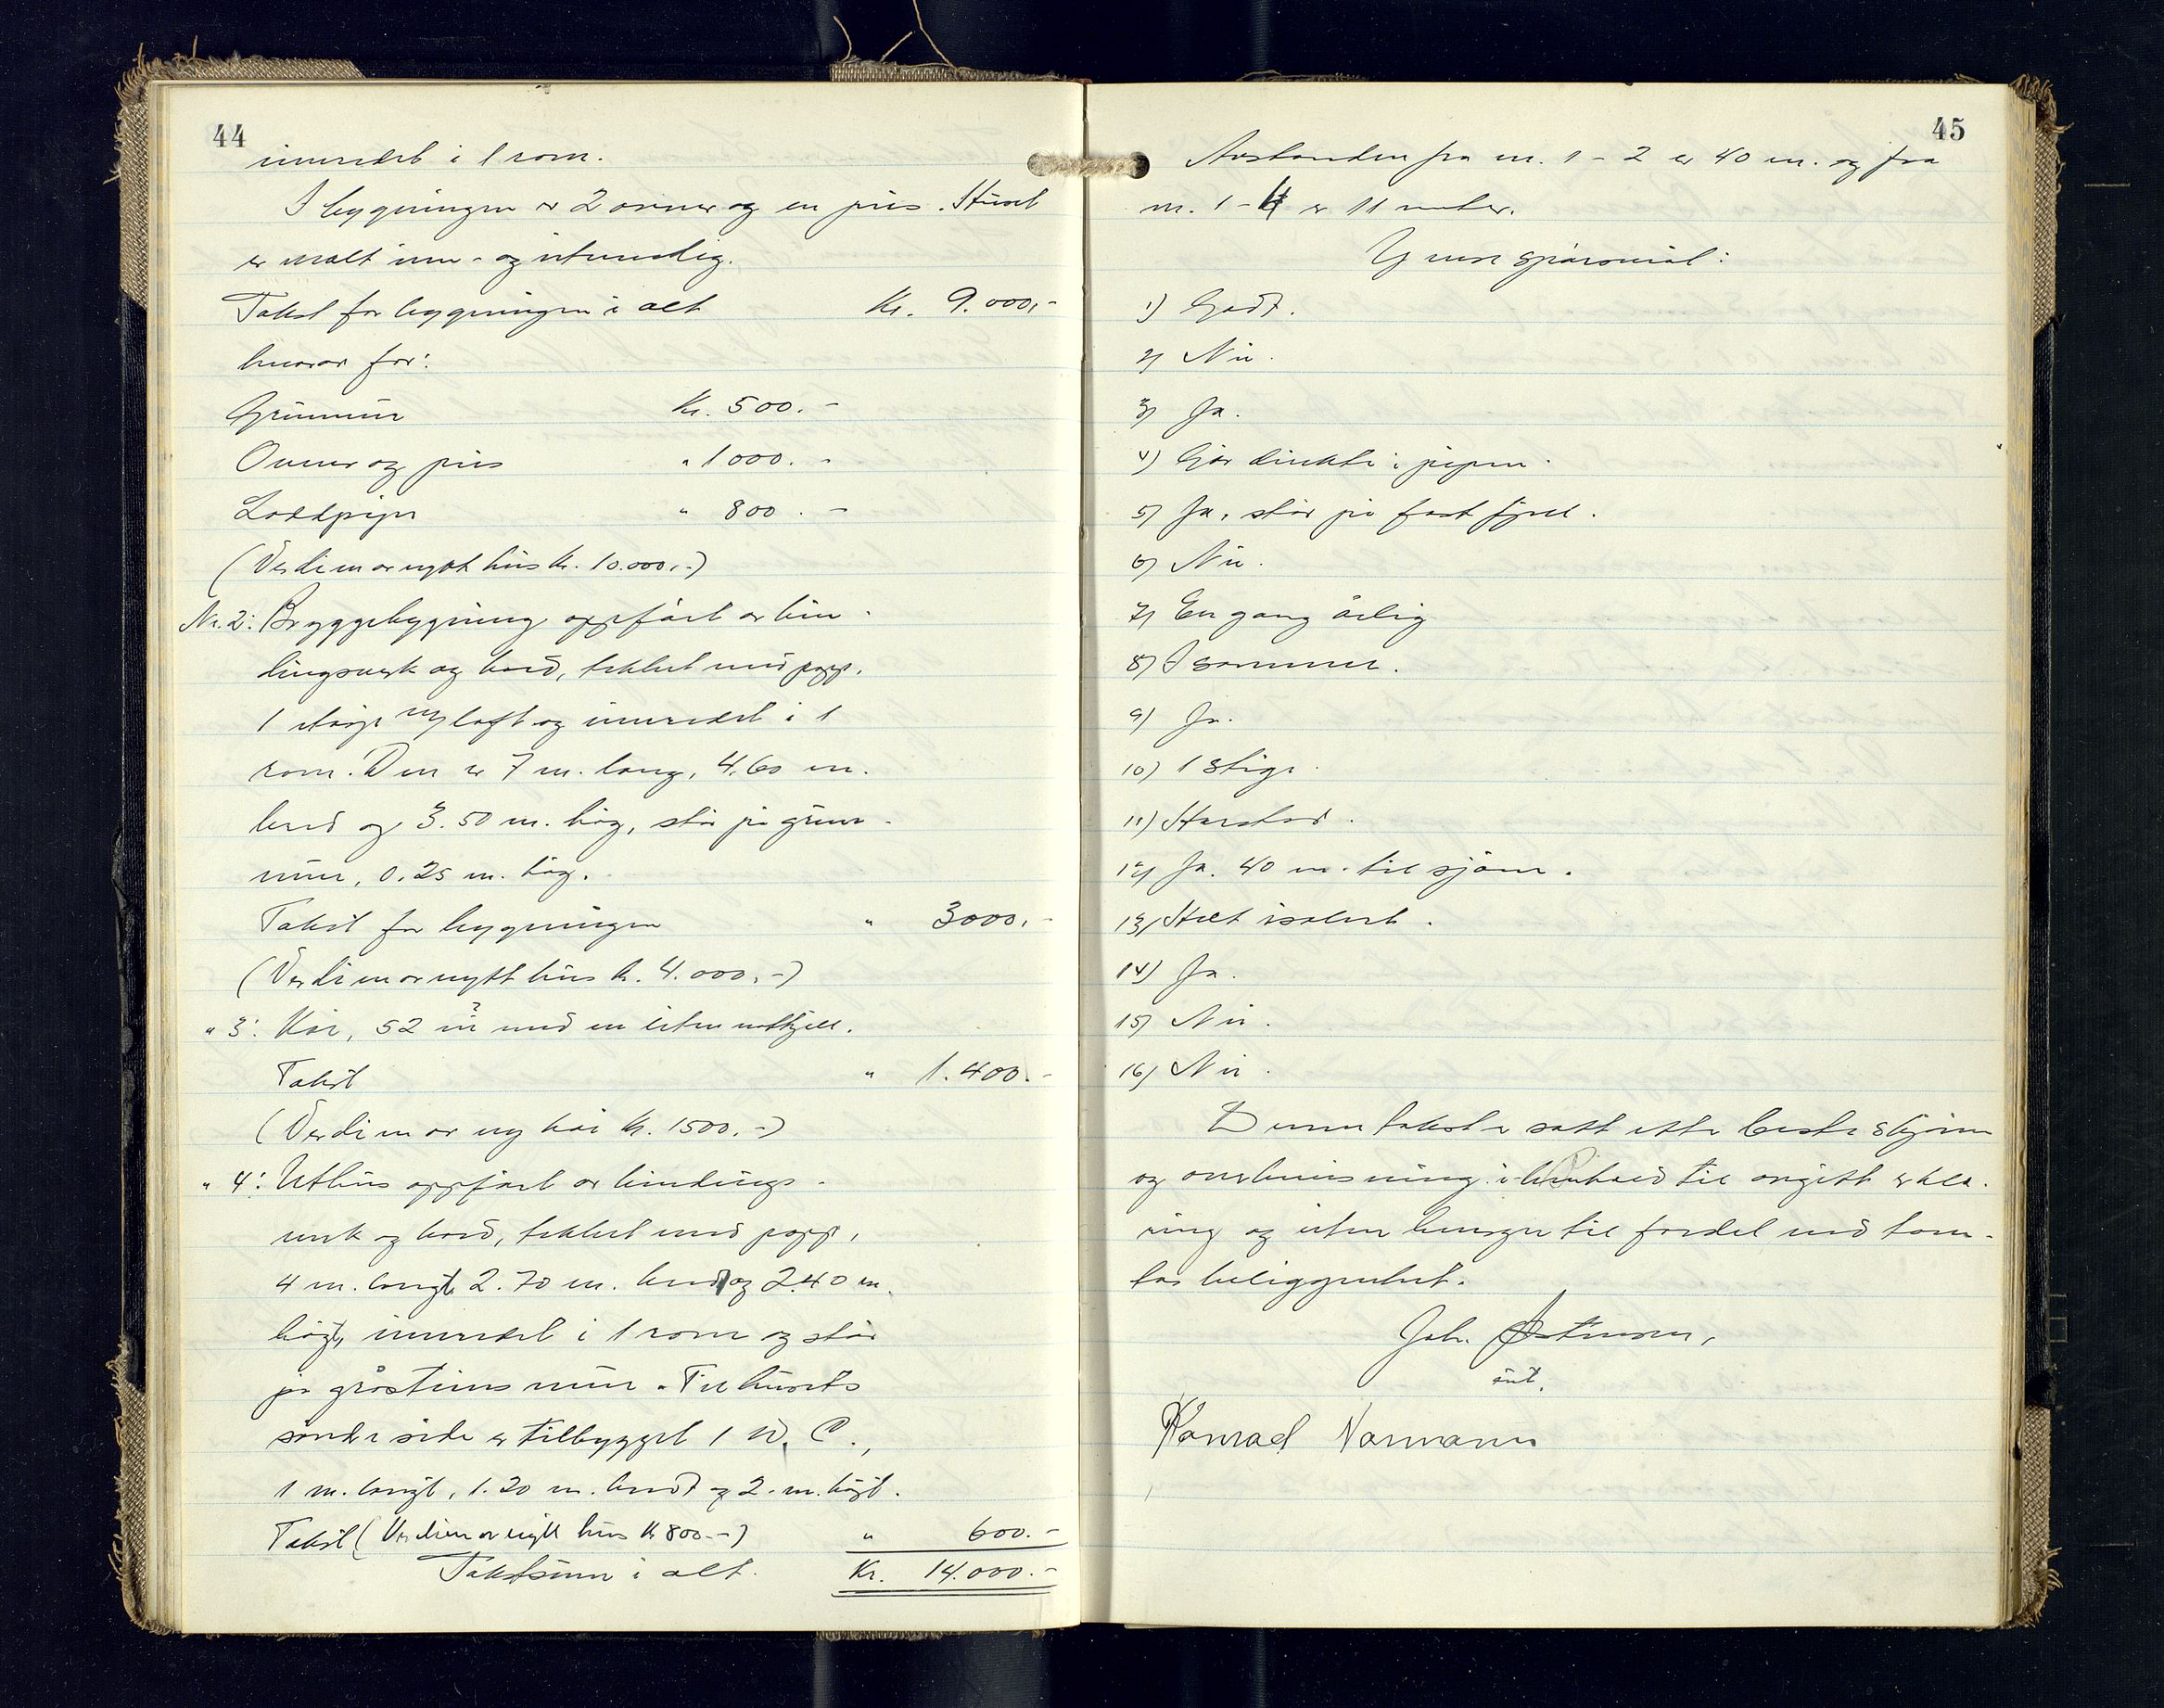 44
innredet i 1 rom.
I bygningen er 2 ovner og en peis. Huset
er malt inn- og utvendig.
Takst for bygningen i alt Kr. 9.000,-
hvorav for:
Grunnmur Kr. 500.-
Ovner og peis " 1000.-
Loddpiper " 800.-
(Verdien av nytt hus kr. 10.000,-)
Nr. 2: Bryggebygning oppført av bin-
dingsverk og bord, tekket med papp.
1 etasje m/loft og innredet i 1
rom. Den er 7 m. lang, 4,60 m.
bred og 3.50 m. høg, står på grunn-
mur, 0.25 m. høg.
Takst for bygningen " 3000.-
(Verdien av nytt hus kr. 4.000,-)
" 3: Kai, 52 m² med en liten
Takst " 1.400.-
(Verdien av ny kai kr. 1500.-)
" 4: Uthus oppført av bindings-
verk og bord, tekket med papp,
4 m. langt, 2.70 m. bredt og 2.40 m.
høgt, innredet i 1 rom og står
på gråsteins mur. Til husets
søndre side er tilbygget 1 W.C.,
1 m. langt, 1.20 m. bredt og 2. m. høgt.
Takst (Verdien av nytt hus kr 800.-) " 600.-
Takstsum i alt. Kr. 14.000.-
45
Avstanden fra nr. 1 - 2 er 40 m. og fra
nr. 1 - 4 er 11 meter.
Ymse spørsmål:
1) Godt.
2) Nei.
3) Ja.
4) Går direkte i pipen.
5) Ja, står på fast fjell.
6) Nei.
7) En gang årlig
8) I sommer.
9) Ja.
10) 1 stige.
11) Harstad.
12) Ja. 40 m. til sjøen.
13) Helt isolert.
14) Ja.
15) Nei.
16) Nei.
Denne takst er satt etter beste skjønn
og overbevisning i henhold til avgitt erklæ-
ring og uten hensyn til fordel ved tom-
tas beliggenhet.
Joh.
Konrad Normann